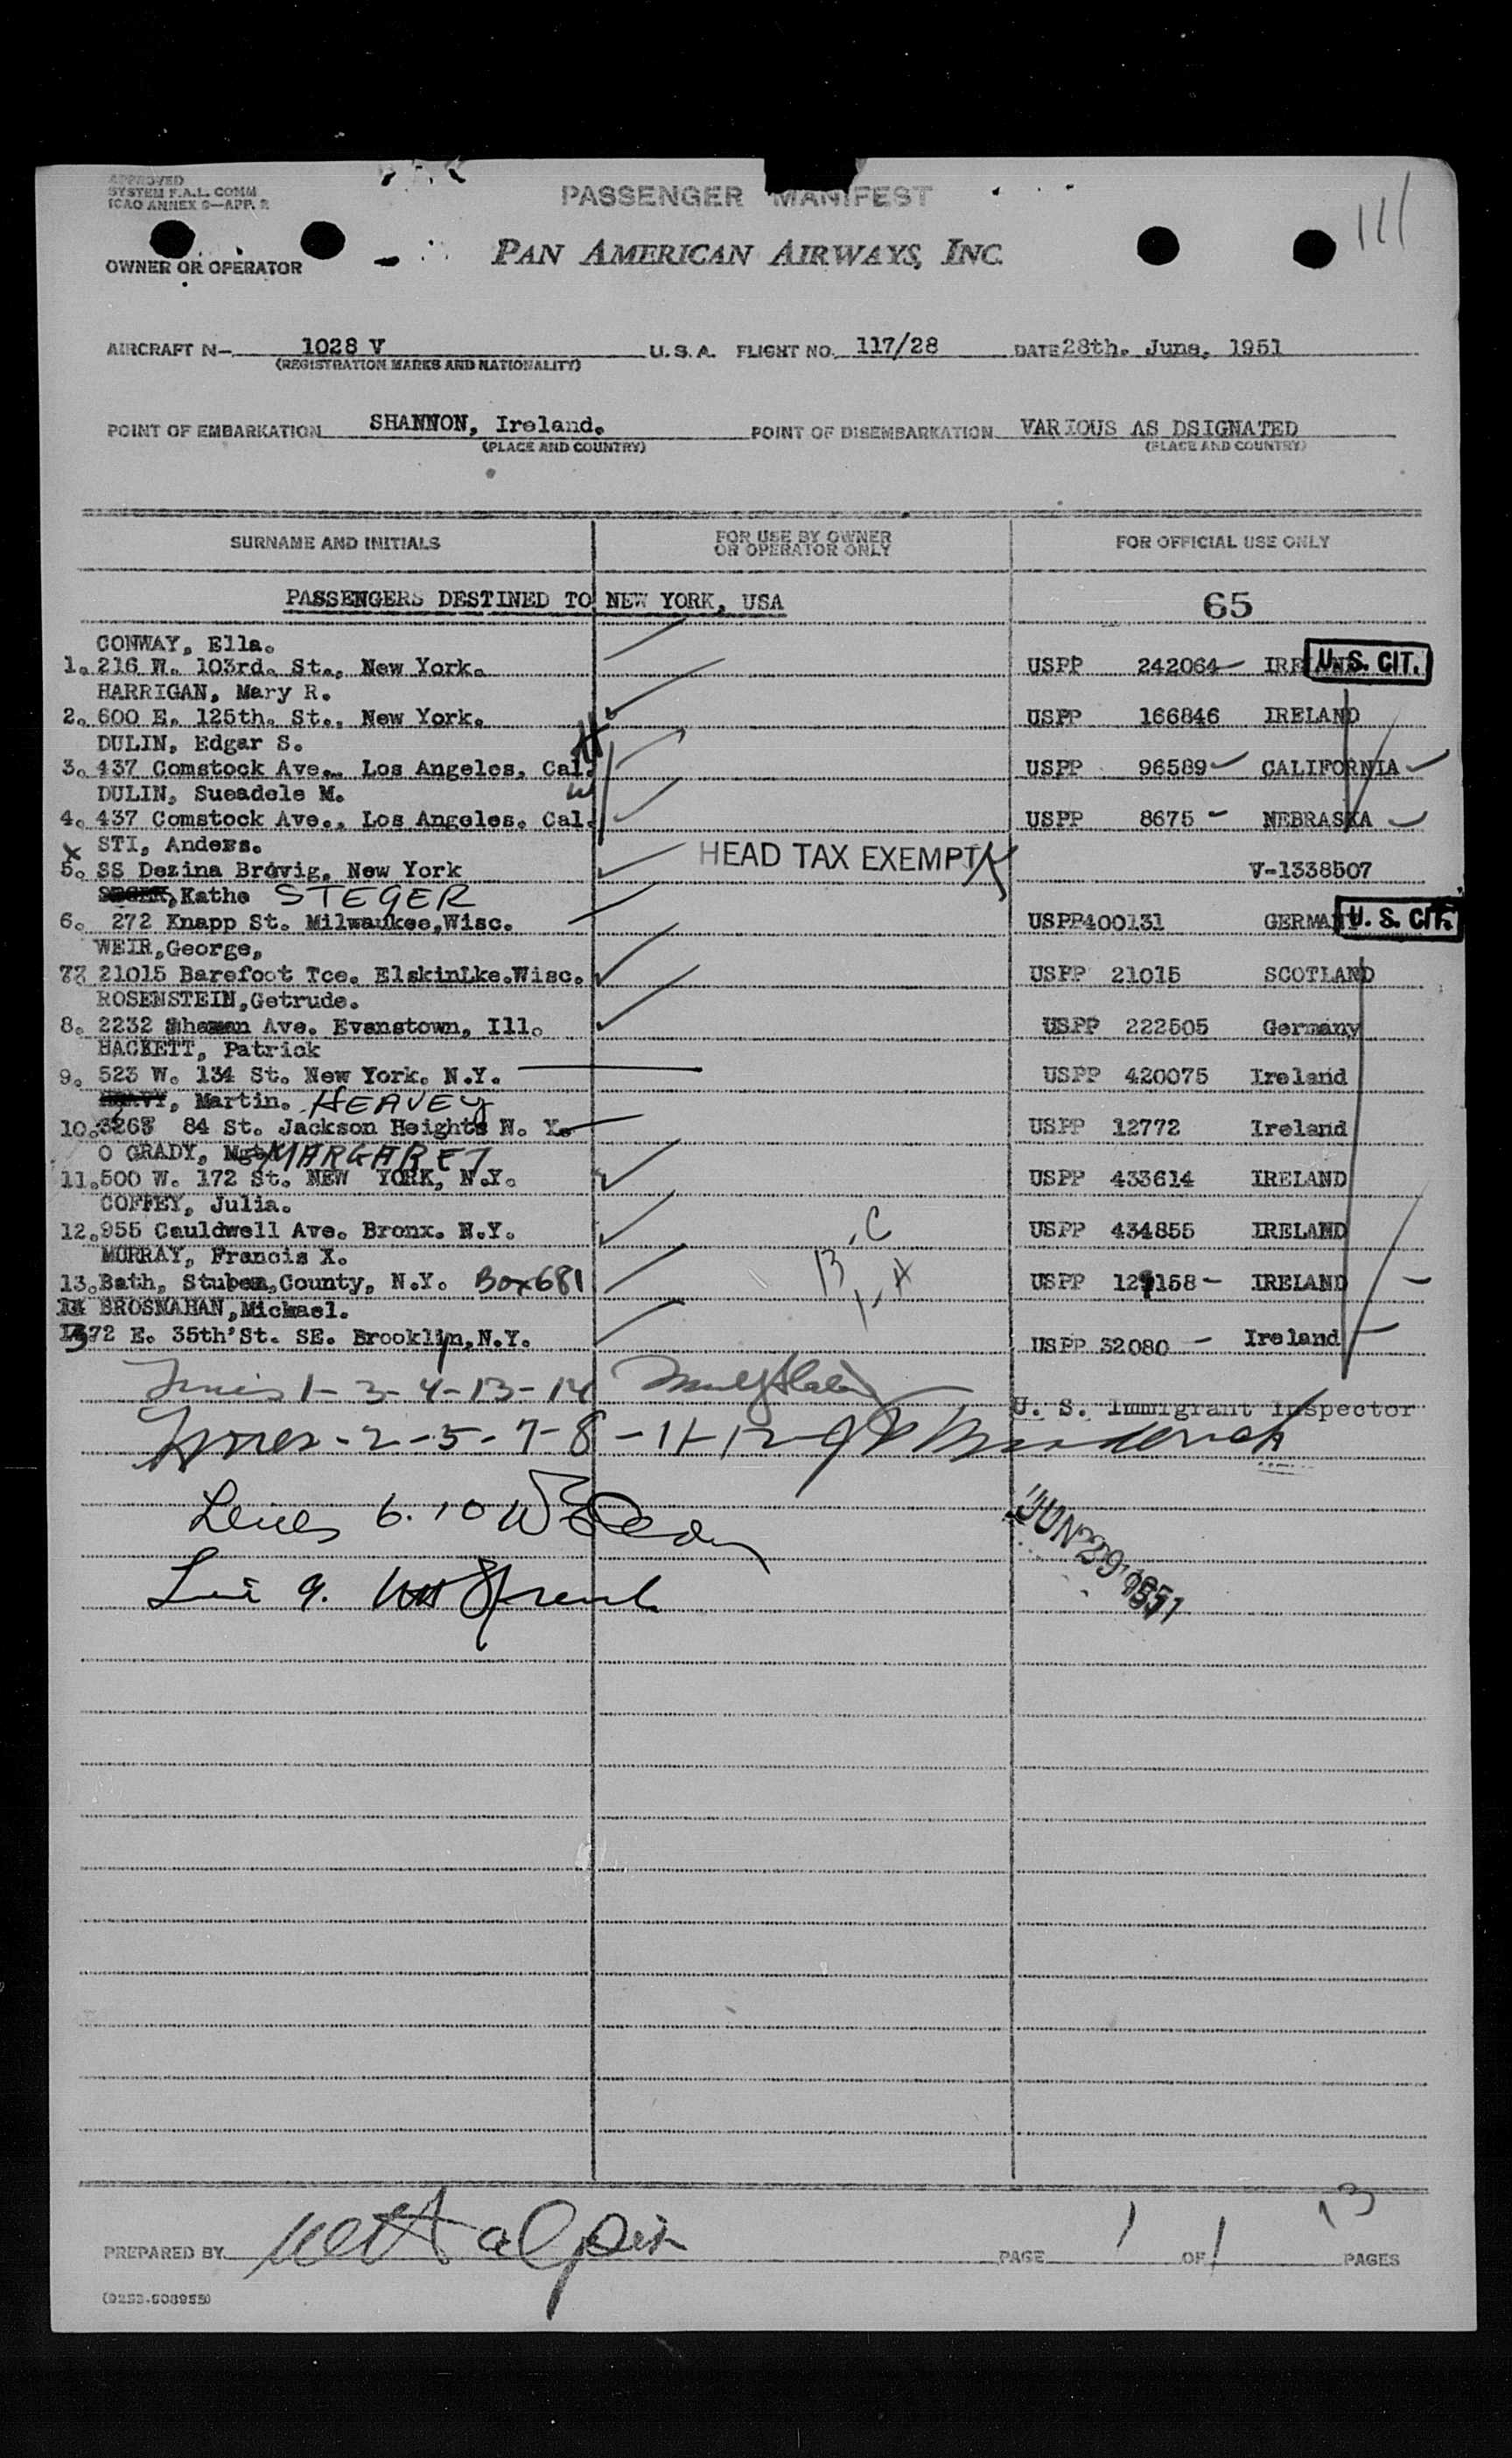 APPROVED
SYSTEM F.A.L. COMM
ICAO ANNEX 9—APP. 2
PASSENGER MANIFEST
111
PAN AMERICAN AIRWAYS, INC.
OWNER OR OPERATOR
AIRCRAFT N- 1028 V U.S.A. FLIGHT NO. 117/28 DATE 28th. June, 1951
(REGISTRATION MARKS AND NATIONALITY)
POINT OF EMBARKATION SHANNON, Ireland. POINT OF DISEMBARKATION VARIOUS AS DSIGNATED
(PLACE AND COUNTRY) (PLACE AND COUNTRY)
SURNAME AND INITIALS FOR USE BY OWNER OR OPERATOR ONLY FOR OFFICIAL USE ONLY
PASSENGERS DESTINED TO NEW YORK, USA 65
CONWAY, Ella.
1. 216 W. 103rd. St., New York. USPP 242064 IRELAND U. S. CIT.
HARRIGAN, Mary R.
2. 600 E. 125th. St., New York. USPP 166846 IRELAND
DULIN, Edgar S.
3. 437 Comstock Ave., Los Angeles, Cal. USPP 96589 CALIFORNIA
DULIN, Sueadele M.
4. 437 Comstock Ave., Los Angeles. Cal. USPP 8675 NEBRASKA
STI, Anders. HEAD TAX EXEMPT
x 5. SS Dezina Brovig, New York V-1338507
Kathe STEGER
6. 272 Knapp St. Milwaukee, Wisc. USPP400131 GERMANY U. S. CIT.
WEIR, George,
7. 21015 Barefoot Tce. ElskinLke.Wisc. USPP 21015 SCOTLAND
ROSENSTEIN, Getrude.
8. 2232 Ave. Evanstown, Ill. USPP 222505 Germany
HACKETT, Patrick
9. 523 W. 134 St. New York. N.Y. USPP 420075 Ireland
Martin. HEAVEY
10. 3263 84 St. Jackson Heights N. Y. USPP 12772 Ireland
O GRADY, Mgt MARGARET
11. 500 W. 172 St. NEW YORK, N.Y. USPP 433614 IRELAND
COFFEY, Julia.
12. 955 Cauldwell Ave. Bronx. N.Y. USPP 434855 IRELAND
MURRAY, Francis X.
13. Bath, Stuben, County, N.Y. Box 681 USPP 129158 IRELAND
14 BROSNAHAN, Michael.
1372 E. 35th St. SE. Brooklyn, N.Y. USPP 32080 Ireland
1-3-4-13-14
U. S. Immigrant Inspector
2-5-7-8-11-12
Lines 6. 10
9.
JUN 29 1951
13
PREPARED BY PAGE 1 OF 1 PAGES